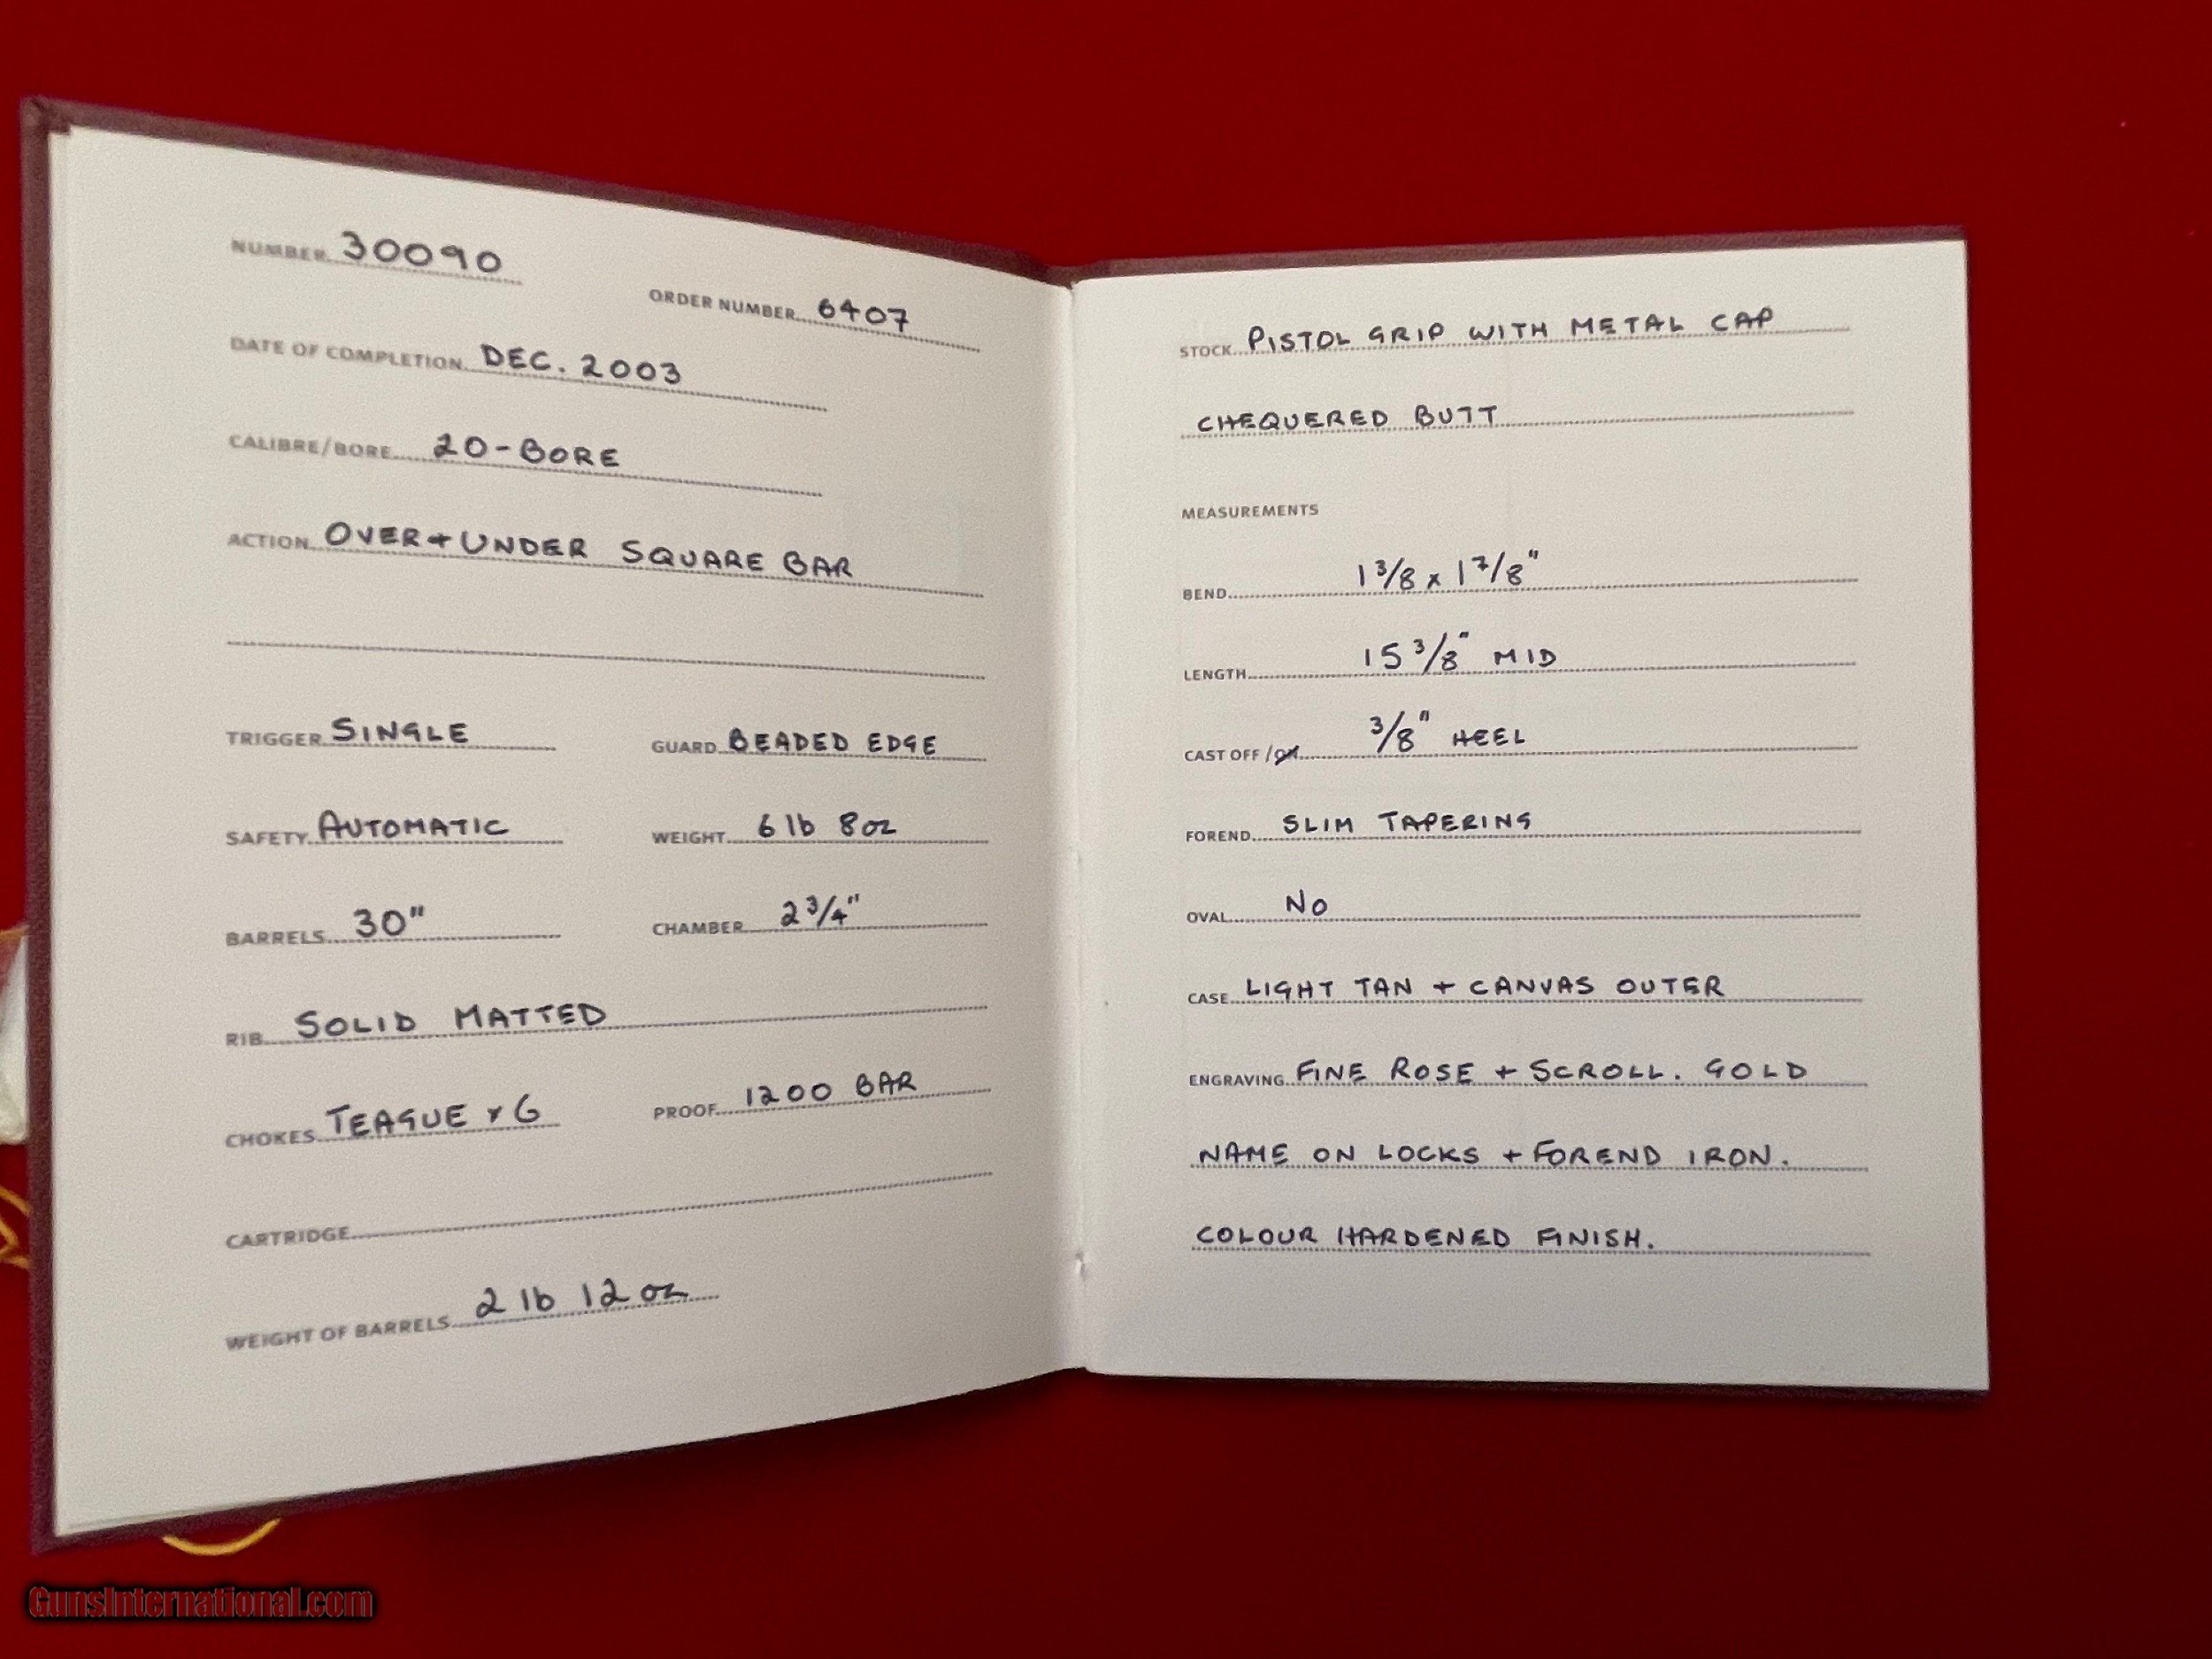 NUMBER 30090
ORDER NUMBER 6407
DATE OF COMPLETION DEC. 2003
CALIBRE/BORE 20-BORE
ACTION OVER + UNDER SQUARE BAR
TRIGGER SINGLE GUARD BEADED EDGE
SAFETY AUTOMATIC WEIGHT 6 lb 8oz
BARRELS 30" CHAMBER 2 3/4"
RIB SOLID MATTED
CHOKES TEAGUE x 6 PROOF 1200 BAR
CARTRIDGE
WEIGHT OF BARRELS 2 lb 12 oz
STOCK PISTOL GRIP WITH METAL CAP
CHEQUERED BUTT
MEASUREMENTS
BEND 1 3/8 x 1 7/8"
LENGTH 15 3/8" MID
CAST OFF/ON 3/8" HEEL
FOREND SLIM TAPERING
OVAL NO
CASE LIGHT TAN + CANVAS OUTER
ENGRAVING FINE ROSE + SCROLL. GOLD
NAME ON LOCKS + FOREND IRON.
COLOUR HARDENED FINISH.
GunsInternational.com